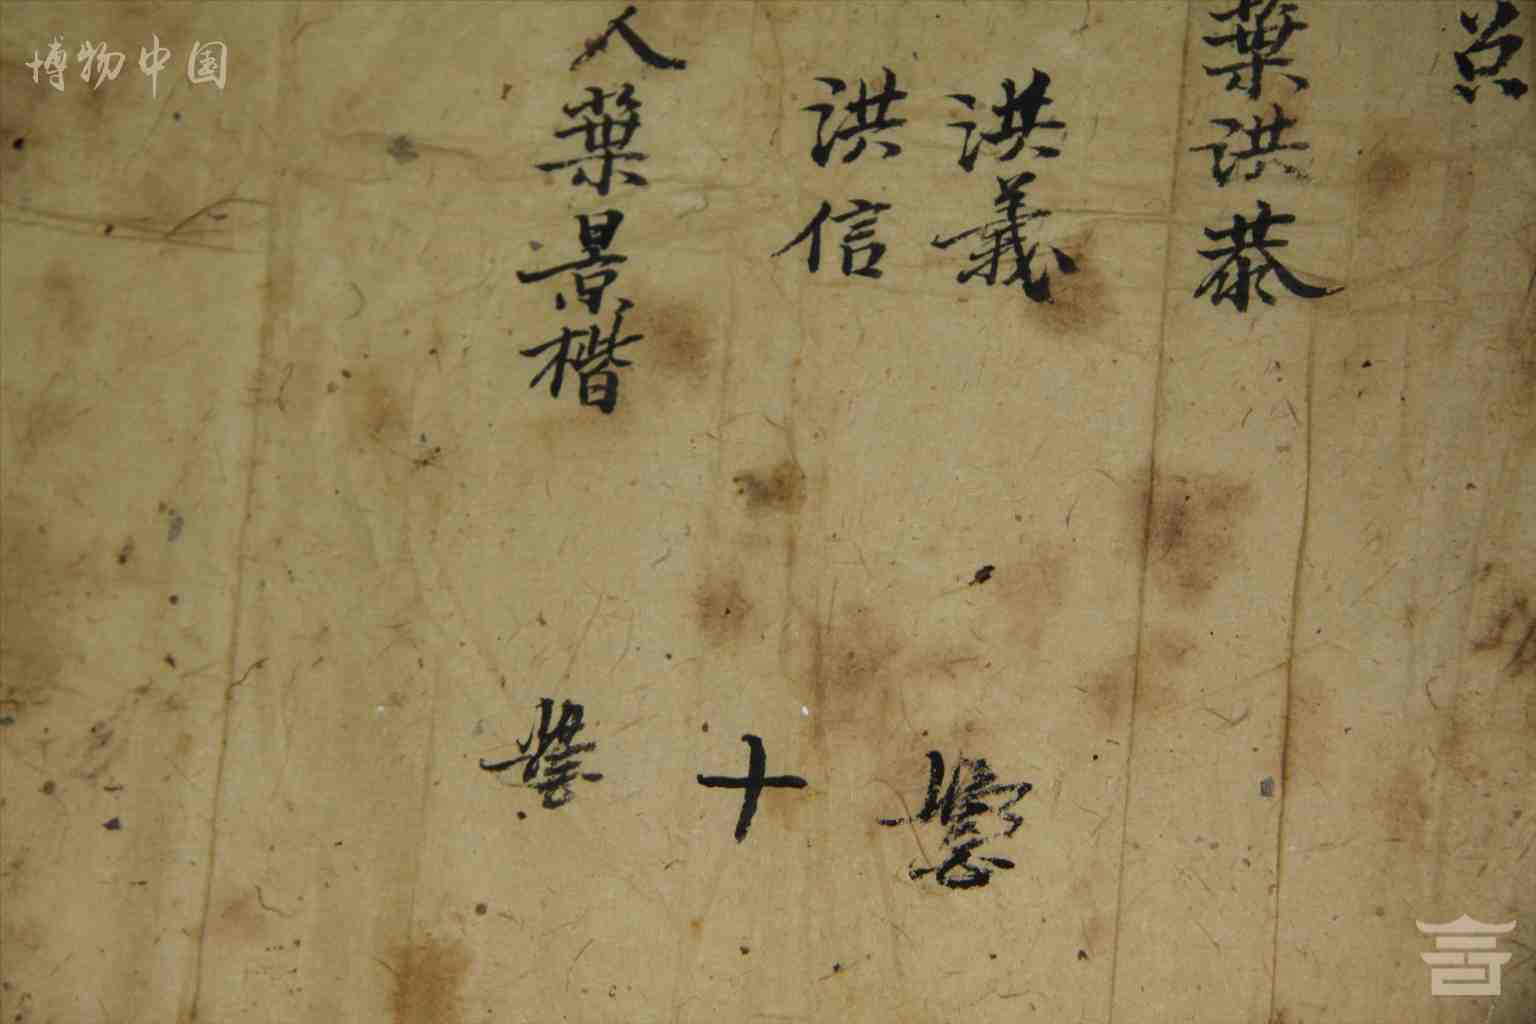 总
葉洪恭
洪義
洪信
人葉景楷
十
博物中国